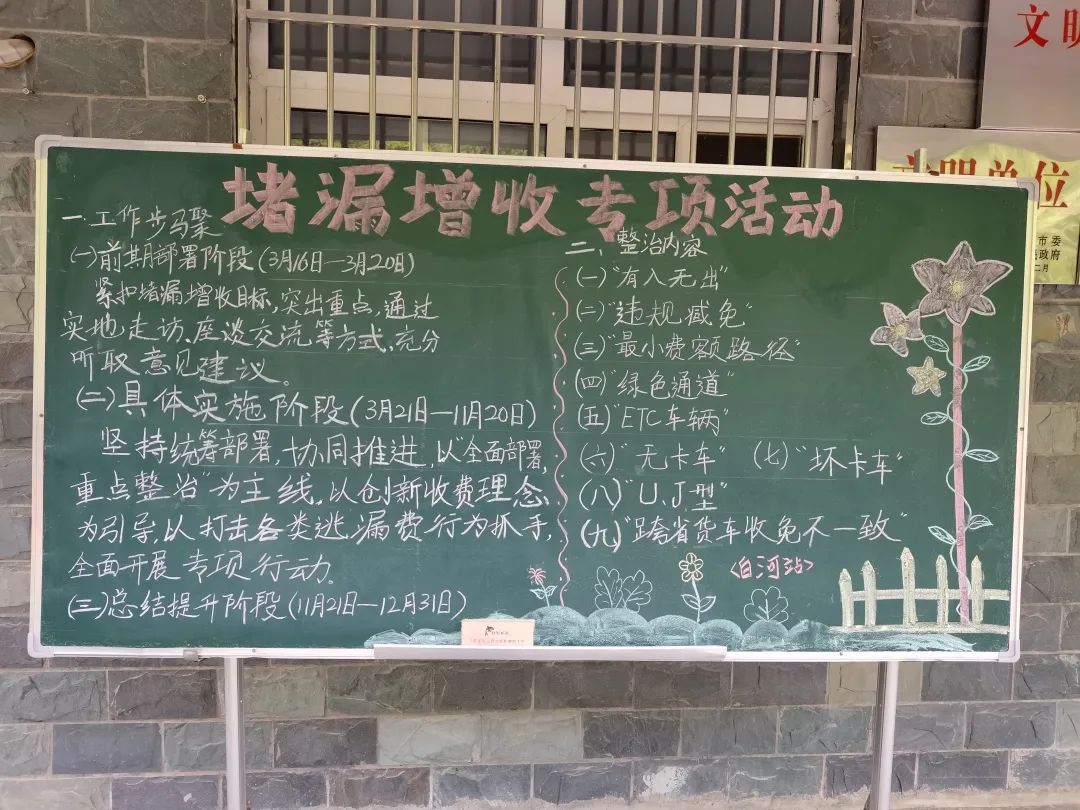 堵漏增收专项活动
一.工作步马聚
(一)前期部署阶段(3月16日—3月20日)
紧扣堵漏增收目标,突出重点,通过
实地走访、座谈交流等方式,充分
听取意见建议。
(二)具体实施阶段(3月21日—11月20日)
坚持统筹部署,协同推进,以"全面部署,
重点整治"为主线,以创新收费理念
为引导,以打击各类逃漏费行为抓手,
全面开展专项行动。
(三)总结提升阶段(11月21日—12月31日)
二、整治内容
(一)"有入无出"
(二)"违规减免"
(三)"最小费额路径"
(四)"绿色通道"
(五)"ETC车辆"
(六)"无卡车" (七)"坏卡车"
(八)"U、J型"
(九)"跨省货车收免不一致"
<白河站>
文明
文明单位
市委
政府
二月